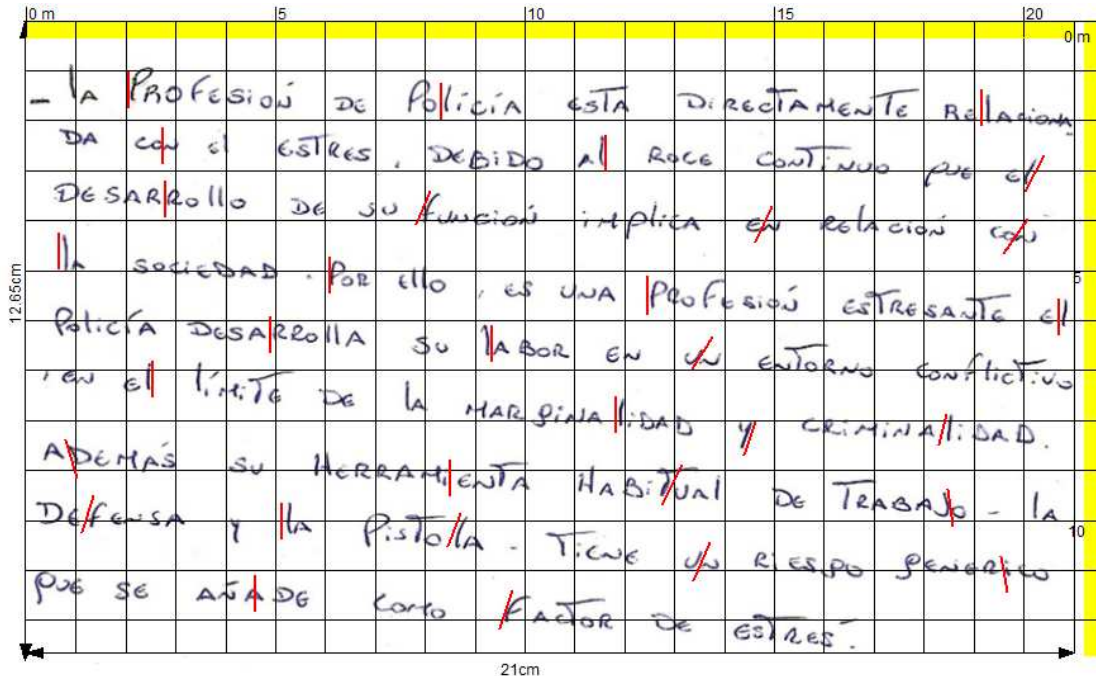 0 m 5 10 15 20
0 m
- la PROFESIÓN DE Policía ESTA DIRECTAMENTE RElaciona
DA con el ESTRES, DEBIDO Al ROCE CONTINUO que el
DESARRollo DE su función implica EN RElACIÓN con
la SOCIEDAD. POR Ello, ES UNA PROFESIÓN ESTRESANTE El
5
Policía DESARRollA su lABOR EN UN ENTORNO CONflicTivo
, EN El límiTE DE lA MARginaliDAD y CRIMINAliDAD.
ADEMÁS SU HERRAMiENTA HABiTUAl DE TRABAJO - lA
DEfENSA y lA PisTolA - TiENE UN RiESgO gENERico
10
quE SE AÑADE COMO FACTOR DE ESTRÉS.
12.65cm
21cm